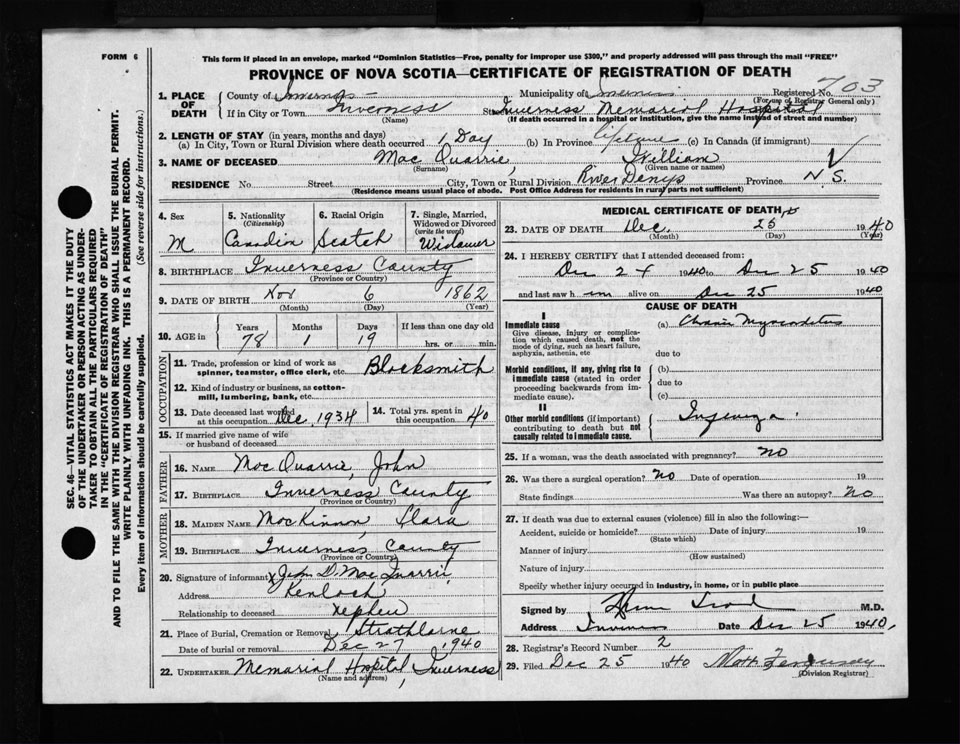 FORM 6
This form if placed in an envelope, marked "Dominion Statistics—Free, penalty for improper use $300," and properly addressed will pass through the mail "FREE"
PROVINCE OF NOVA SCOTIA—CERTIFICATE OF REGISTRATION OF DEATH
Registered No. 703
(For use of Registrar General only)
1. PLACE OF DEATH
County of Inverness Municipality of Inverness
If in City or Town Inverness St. Inverness Memorial Hospital
(Name)
(If death occurred in a hospital or institution, give the name instead of street and number)
2. LENGTH OF STAY (in years, months and days)
(a) In City, Town or Rural Division where death occurred 1 Day (b) In Province lifetime (c) In Canada (if immigrant)
3. NAME OF DECEASED Mac Quarrie, William
(Surname) (Given name or names)
RESIDENCE No. Street City, Town or Rural Division River Denys Province N.S.
(Residence means usual place of abode. Post Office Address for residents in rural parts not sufficient)
SEC. 46—VITAL STATISTICS ACT MAKES IT THE DUTY
OF THE UNDERTAKER OR PERSON ACTING AS UNDER-
TAKER TO OBTAIN ALL THE PARTICULARS REQUIRED
IN THE "CERTIFICATE OF REGISTRATION OF DEATH"
AND TO FILE THE SAME WITH THE DIVISION REGISTRAR WHO SHALL ISSUE THE BURIAL PERMIT.
WRITE PLAINLY WITH UNFADING INK. THIS IS A PERMANENT RECORD.
Every item of information should be carefully supplied. (See reverse side for instructions.)
4. Sex
M
5. Nationality
(Citizenship)
Canadin
6. Racial Origin
Scotch
7. Single, Married, Widowed or Divorced
(write the word)
Widower
8. BIRTHPLACE Inverness County
(Province or County)
9. DATE OF BIRTH Nov 6 1862
(Month) (Day) (Year)
10. AGE in Years Months Days If less than one day old
78 1 19 hrs. or min.
OCCUPATION
11. Trade, profession or kind of work as
spinner, teamster, office clerk, etc. Blacksmith
12. Kind of industry or business, as cotton-
mill, lumbering, bank, etc.
13. Date deceased last worked
at this occupation Dec, 1934
14. Total yrs. spent in
this occupation 40
15. If married give name of wife
or husband of deceased
FATHER
16. NAME Mac Quarrie, John
17. BIRTHPLACE Inverness County
(Province or Country)
MOTHER
18. MAIDEN NAME MacKinnon, Clara
19. BIRTHPLACE Inverness County
(Province or Country)
20. Signature of informant x John D. Mac Quarrie
Address Kenloch
Relationship to deceased nephew
21. Place of Burial, Cremation or Removal Strathlorne
Date of burial or removal Dec 27, 1940
22. UNDERTAKER Memorial Hospital, Inverness
(Name and address)
MEDICAL CERTIFICATE OF DEATH
23. DATE OF DEATH Dec. 25 1940
(Month) (Day) (Year)
24. I HEREBY CERTIFY that I attended deceased from:
Dec 24 1940 to Dec 25 1940
and last saw h im alive on Dec 25 1940
CAUSE OF DEATH
I
Immediate cause
Give disease, injury or complica-
tion which caused death, not the
mode of dying, such as heart failure,
asphyxia, asthenia, etc
(a) Myocarditis
due to
Morbid conditions, if any, giving rise to
immediate cause (stated in order
proceeding backwards from im-
mediate cause).
(b)
due to
(c)
II
Other morbid conditions (if important)
contributing to death but not
causally related to immediate cause.
25. If a woman, was the death associated with pregnancy? No
26. Was there a surgical operation? No Date of operation 19
State findings Was there an autopsy? No
27. If death was due to external causes (violence) fill in also the following:—
Accident, suicide or homicide? 19 Date of injury 19
(State which)
Manner of injury
(How sustained)
Nature of injury
Specify whether injury occurred in industry, in home, or in public place
Signed by M.D.
Address Date Dec 25 1940.
28. Registrar's Record Number 2
29. Filed Dec 25 1940
(Division Registrar)